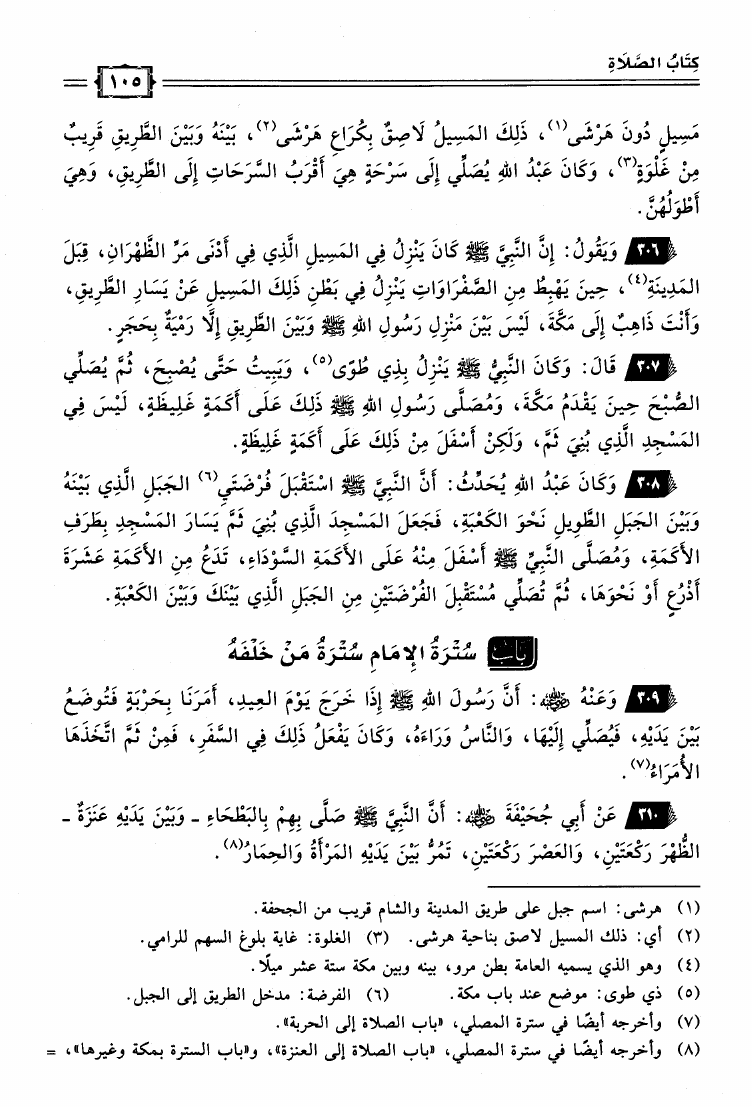 كِتَابُ الصَّلَاةِ
١٠٥
مَسِيلٍ دُونَ هَرْشَى(١)، ذَلِكَ المَسِيلُ لَاصِقٌ بِكُرَاعِ هَرْشَى(٢)، بَيْنَهُ وَبَيْنَ الطَّرِيقِ قَرِيبٌ
مِنْ غَلْوَةٍ(٣)، وَكَانَ عَبْدُ اللهِ يُصَلِّي إِلَى سَرْحَةٍ هِيَ أَقْرَبُ السَّرَحَاتِ إِلَى الطَّرِيقِ، وَهِيَ
أَطْوَلُهُنَّ.
٣٠٦ وَيَقُولُ: إِنَّ النَّبِيَّ ﷺ كَانَ يَنْزِلُ فِي المَسِيلِ الَّذِي فِي أَدْنَى مَرِّ الظَّهْرَانِ، قِبَلَ
المَدِينَةِ(٤)، حِينَ يَهْبِطُ مِنِ الصَّفْرَاوَاتِ يَنْزِلُ فِي بَطْنِ ذَلِكَ المَسِيلِ عَنْ يَسَارِ الطَّرِيقِ،
وَأَنْتَ ذَاهِبٌ إِلَى مَكَّةَ، لَيْسَ بَيْنَ مَنْزِلِ رَسُولِ اللهِ ﷺ وَبَيْنَ الطَّرِيقِ إِلَّا رَمْيَةٌ بِحَجَرٍ.
٣٠٧ قَالَ: وَكَانَ النَّبِيُّ ﷺ يَنْزِلُ بِذِي طُوًى(٥)، وَيَبِيتُ حَتَّى يُصْبِحَ، ثُمَّ يُصَلِّي
الصُّبْحَ حِينَ يَقْدَمُ مَكَّةَ، وَمُصَلَّى رَسُولِ اللهِ ﷺ ذَلِكَ عَلَى أَكَمَةٍ غَلِيظَةٍ، لَيْسَ فِي
المَسْجِدِ الَّذِي بُنِيَ ثَمَّ، وَلَكِنْ أَسْفَلَ مِنْ ذَلِكَ عَلَى أَكَمَةٍ غَلِيظَةٍ.
٣٠٨ وَكَانَ عَبْدُ اللهِ يُحَدِّثُ: أَنَّ النَّبِيَّ ﷺ اسْتَقْبَلَ فُرْضَتَيِ(٦) الجَبَلِ الَّذِي بَيْنَهُ
وَبَيْنَ الجَبَلِ الطَّوِيلِ نَحْوَ الكَعْبَةِ، فَجَعَلَ المَسْجِدَ الَّذِي بُنِيَ ثَمَّ يَسَارَ المَسْجِدِ بِطَرَفِ
الأَكَمَةِ، وَمُصَلَّى النَّبِيِّ ﷺ أَسْفَلَ مِنْهُ عَلَى الأَكَمَةِ السَّوْدَاءِ، تَدَعُ مِنِ الأَكَمَةِ عَشَرَةَ
أَذْرُعٍ أَوْ نَحْوَهَا، ثُمَّ تُصَلِّي مُسْتَقْبِلَ الفُرْضَتَيْنِ مِنِ الجَبَلِ الَّذِي بَيْنَكَ وَبَيْنَ الكَعْبَةِ.
بَابٌ سُتْرَةُ الإِمَامِ سُتْرَةُ مَنْ خَلْفَهُ
٣٠٩ وَعَنْهُ رضي الله عنه: أَنَّ رَسُولَ اللهِ ﷺ إِذَا خَرَجَ يَوْمَ العِيدِ، أَمَرَنَا بِحَرْبَةٍ فَتُوضَعُ
بَيْنَ يَدَيْهِ، فَيُصَلِّي إِلَيْهَا، وَالنَّاسُ وَرَاءَهُ، وَكَانَ يَفْعَلُ ذَلِكَ فِي السَّفَرِ، فَمِنْ ثَمَّ اتَّخَذَهَا
الأُمَرَاءُ(٧).
٣١٠ عَنْ أَبِي جُحَيْفَةَ رضي الله عنه: أَنَّ النَّبِيَّ ﷺ صَلَّى بِهِمْ بِالبَطْحَاءِ - وَبَيْنَ يَدَيْهِ عَنَزَةٌ -
الظُّهْرَ رَكْعَتَيْنِ، وَالعَصْرَ رَكْعَتَيْنِ، تَمُرُّ بَيْنَ يَدَيْهِ المَرْأَةُ وَالحِمَارُ(٨).
(١) هرشى: اسم جبل على طريق المدينة والشام قريب من الجحفة.
(٢) أي: ذلك المسيل لاصق بناحية هرشى. (٣) الغلوة: غاية بلوغ السهم للرامي.
(٤) وهو الذي يسميه العامة بطن مرو، بينه وبين مكة ستة عشر ميلًا.
(٥) ذي طوى: موضع عند باب مكة. (٦) الفرضة: مدخل الطريق إلى الجبل.
(٧) وأخرجه أيضًا في سترة المصلي، «باب الصلاة إلى الحربة».
(٨) وأخرجه أيضًا في سترة المصلي، «باب الصلاة إلى العنزة»، و«باب السترة بمكة وغيرها»، =